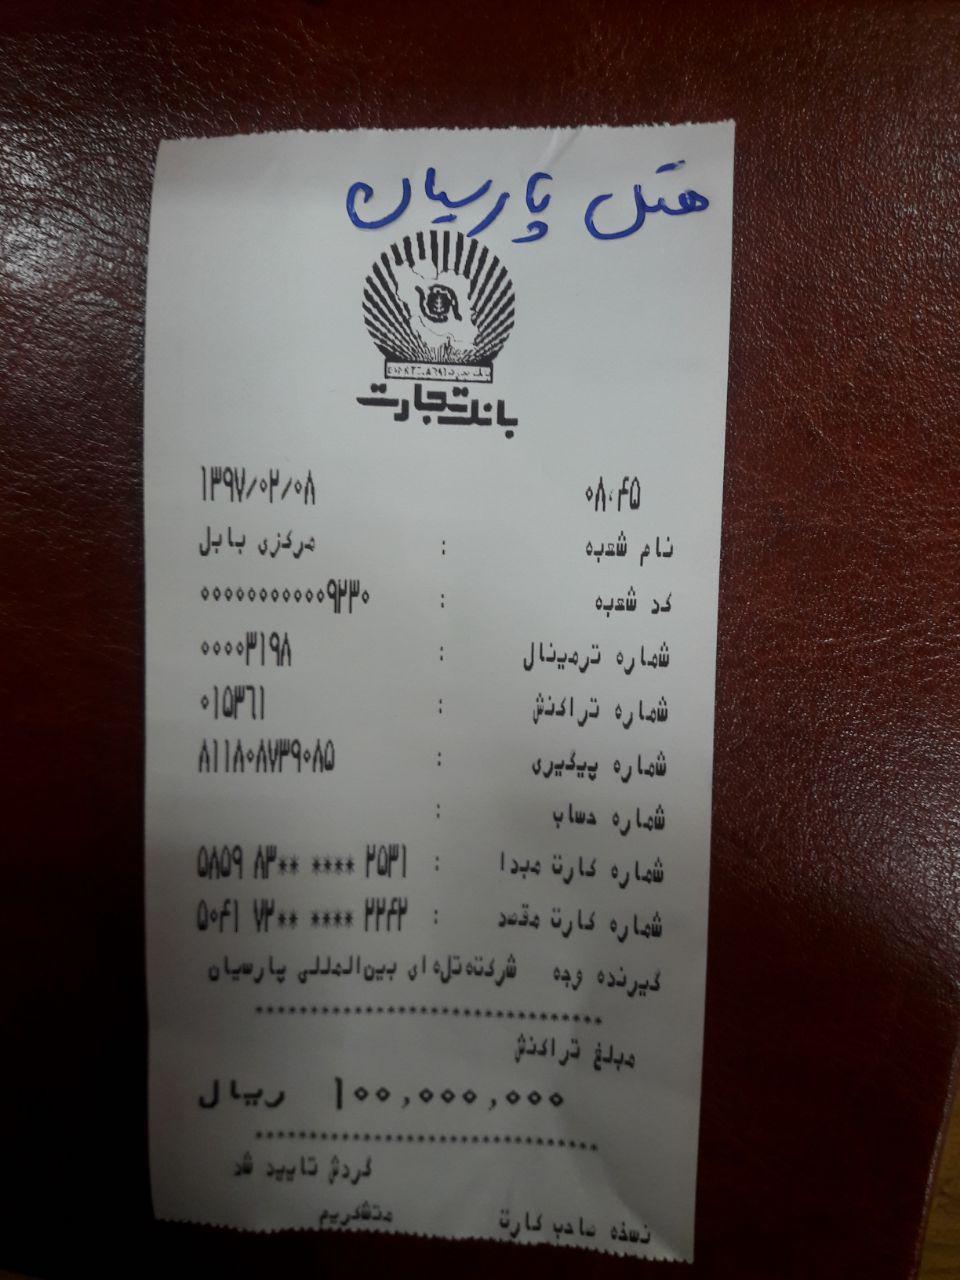 هتل پارسیان
بانک تجارت
۰۸:۴۵ ۱۳۹۷/۰۲/۰۸
نام شعبه : مرکزی بابل
کد شعبه : ۰۰۰۰۰۰۰۰۰۰۰۹۲۳۰
شماره ترمینال : ۰۰۰۰۳۱۹۸
شماره تراکنش : ۰۱۵۳۶۱
شماره پیگیری : ۸۱۱۸۰۸۷۳۹۰۸۵
شماره حساب :
شماره کارت مبدا : ۵۸۵۹ ۸۳** **** ۲۵۳۱
شماره کارت مقصد : ۵۰۴۱ ۷۲** **** ۲۲۴۲
گیرنده وجه شرکت‌ه‌تل‌ه‌ای بین‌المللی پارسیان
******************************
مبلغ تراکنش
۱۰۰,۰۰۰,۰۰۰ ریال
******************************
گردش تایید شد
نسخه صاحب کارت متشکریم